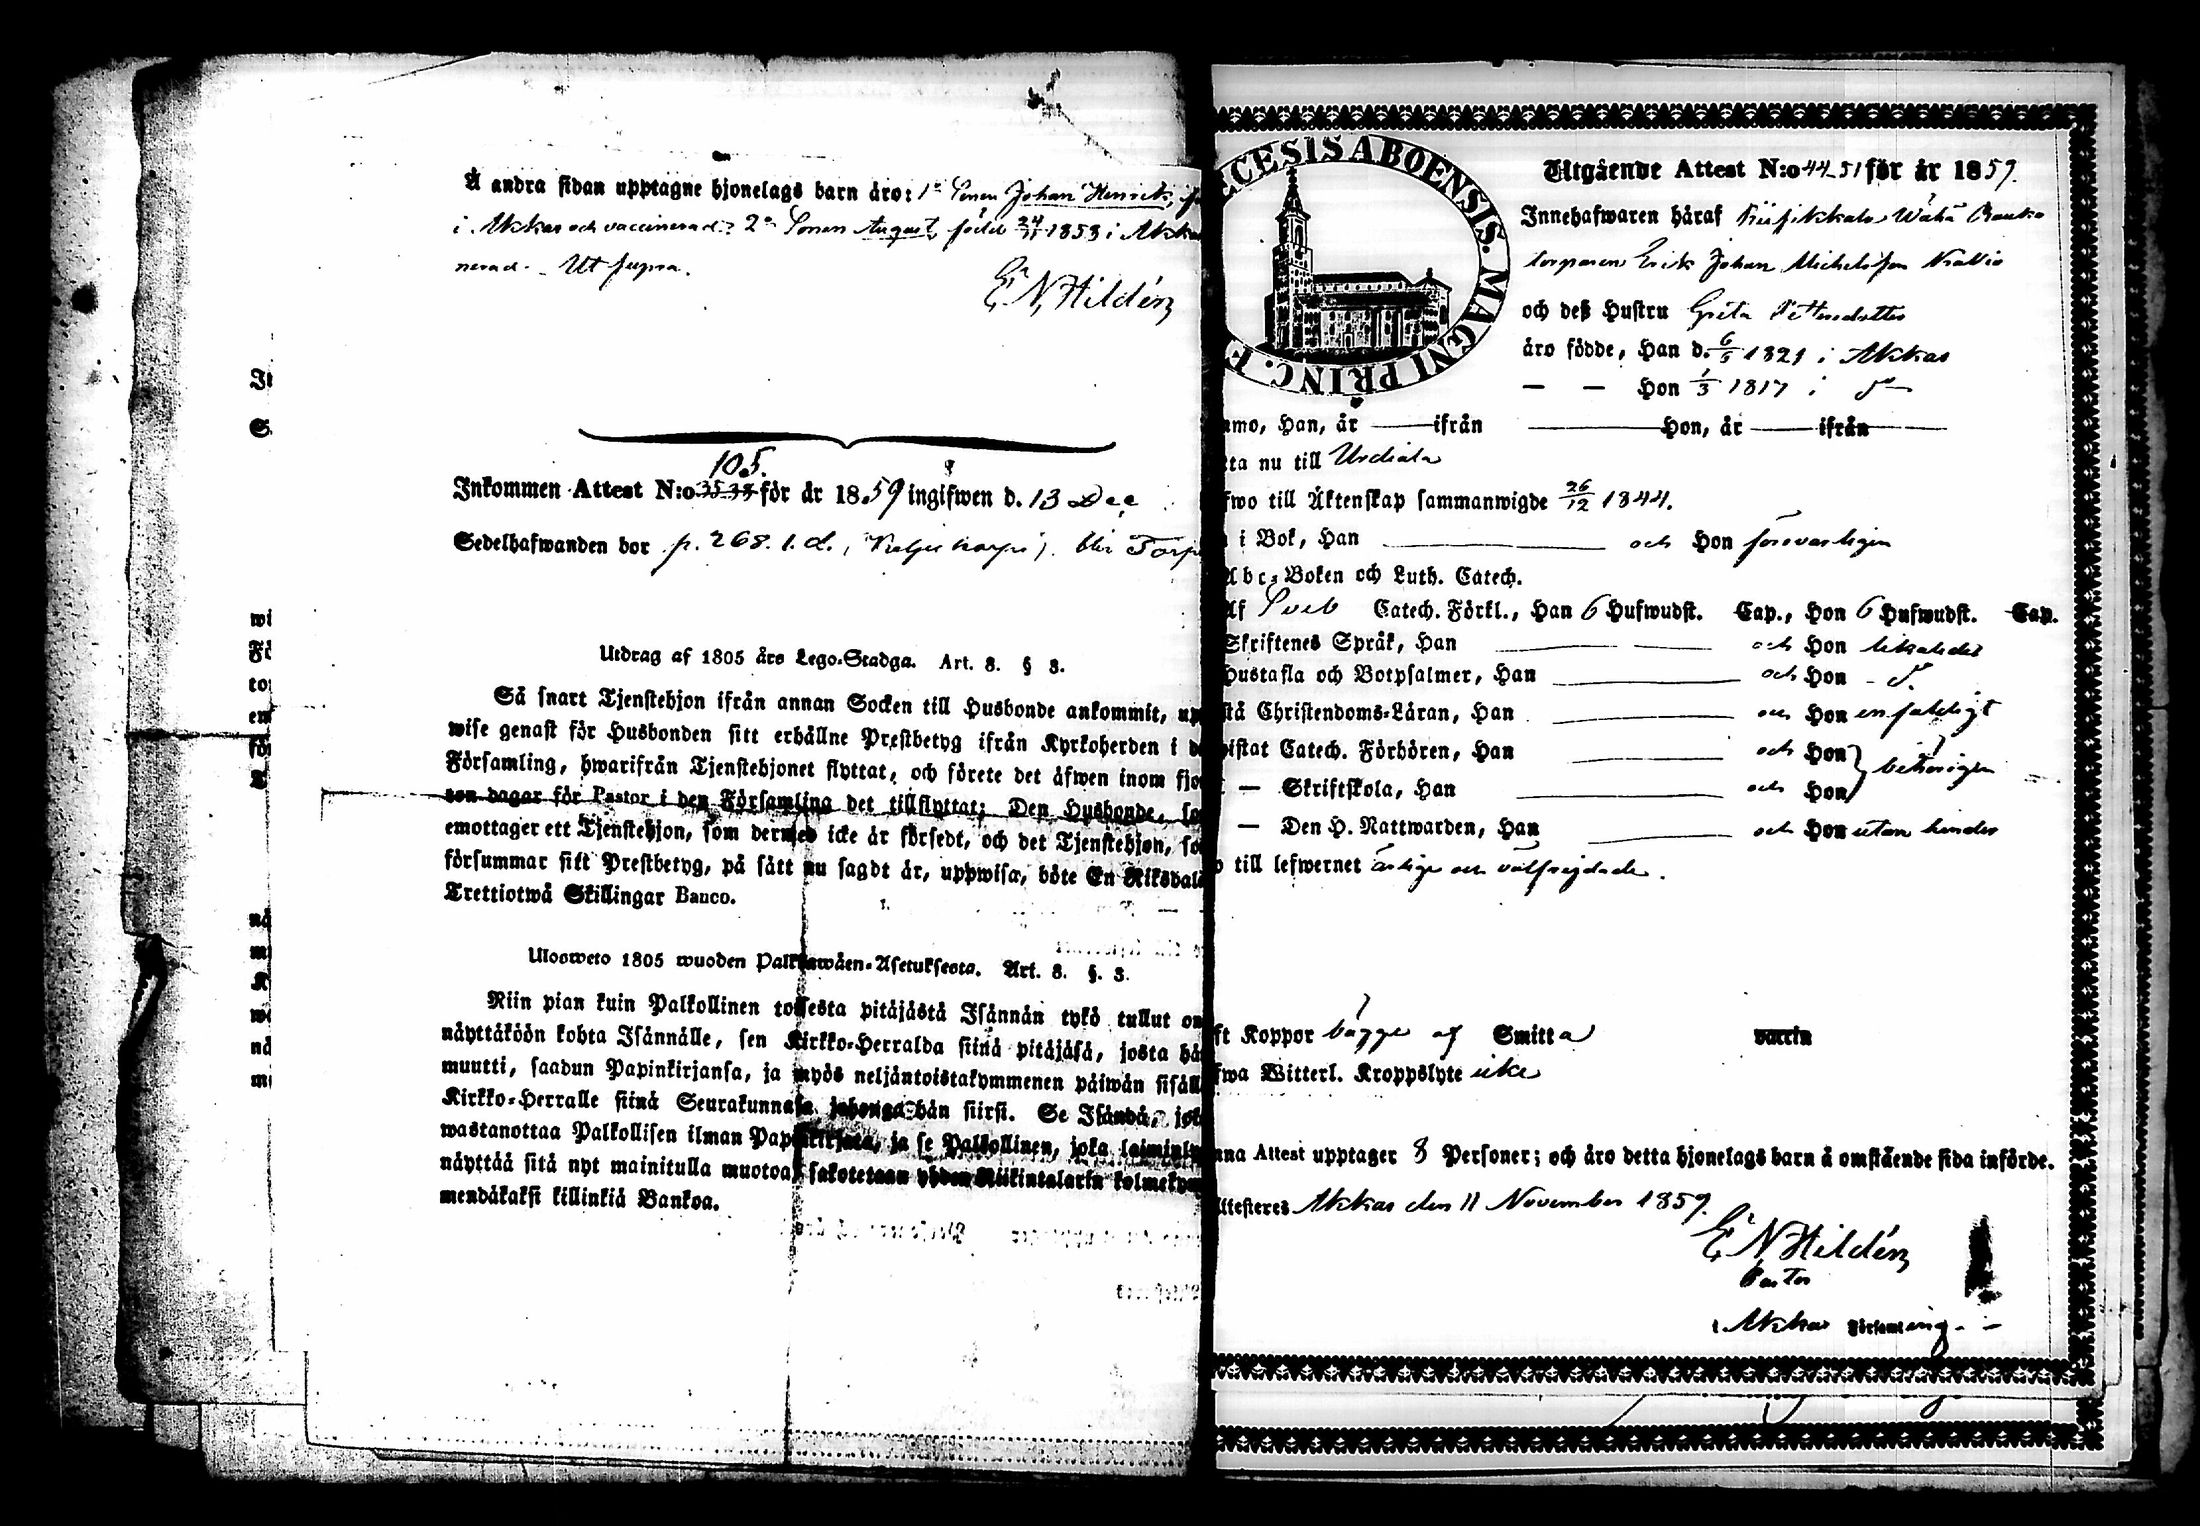 Å andra sidan upptagne hjonelags barn äro: 1o Sonen Johan Henrik,
i Akkas och vaccinerad. 2o Sonen August, född 24/11 1853 i Akkas
nerad. Ut supra.
E. N. Hildén
105.
Inkommen Attest N:o 35.35 för år 1859 ingifwen d. 13 Dec
Sedelhafwanden bor p. 268. 1. d., blir Torp
Utdrag af 1805 års Lego-Stadga. Art. 8. § 3.
Så snart Tjenstehjon ifrån annan Socken till Husbonde ankommit, upp
wise genast för Husbonden sitt erhållne Prestbetyg ifrån Kyrkoherden i d
Församling, hwarifrån Tjenstehjonet flyttat, och förete det äfwen inom fjo
ton dagar för Pastor i den Församling det tillflyttat; Den Husbonde, so
emottager ett Tjenstehjon, som dermed icke är försedt, och det Tjenstehjon, so
försummar sitt Prestbetyg, på sätt nu sagdt är, uppwisa, böte En Riksdal
Trettiotwå Skillingar Banco.
Ulosweto 1805 wuoden Palkkawäen-Asetuksesta. Art. 8. §. 3.
Niin pian kuin Palkollinen toisesta pitäjästä Isännän tykö tullut on
näyttäköön kohta Isännälle, sen Kirkko-Herralda siinä pitäjäsä, josta hä
muutti, saadun Papinkirjansa, ja myös neljäntoistakymmenen päiwän sisäll
Kirkko-Herralle siinä Seurakunnasa johonga hän siirsi. Se Isändä, jok
wastanottaa Palkollisen ilman Papinkirjata, ja se Palkollinen, joka laiminly
näyttää sitä nyt mainitulla muotoa, sakotetaan yhden Riikintalarin kolmekym
mendäkaksi killinkiä Bankoa.
ECESIS ABOENSIS. MAGNI PRINC. F
Utgående Attest N:o 44_51 för år 1859.
Innehafwaren häraf Wähä Rauko
torparen Erik Johan Michelsson Kallio
och deß Hustru Greta Pettersdotter
äro födde, Han d. 6/5 1821 i Akkas
— — Hon 1/3 1817 i do
mmo, Han, år — ifrån — Hon, år — ifrån —
tta nu till Urdiala
fwo till Äktenskap sammanwigde 26/12 1844.
i Bok, Han — och Hon försvarligen
Abc-Boken och Luth. Catech.
Af Sveb Catech. Förkl., Han 6 Hufwudst. Cap., Hon 6 Hufwudst. Cap.
Skriftenes Språk, Han — och Hon likaledes
Hustafla och Botpsalmer, Han — och Hon - do.
stå Christendoms-Läran, Han — och Hon enfaldigt
wistat Catech. Förhören, Han — och Hon } behörigen
— Skriftskola, Han — och Hon
— Den H. Nattwarden, Han — och Hon utan hinder
till lefwernet ärlige och välfrejdade.
ft Koppor bägge af Smitta vaccin
fwa Witterl. Kroppslyte icke
nna Attest upptager 8 Personer; och äro detta hjonelags barn å omstående sida införde.
ttesteres Akkas den 11 November 1859.
E. N. Hildén
Pastor
i Akkas Församling.